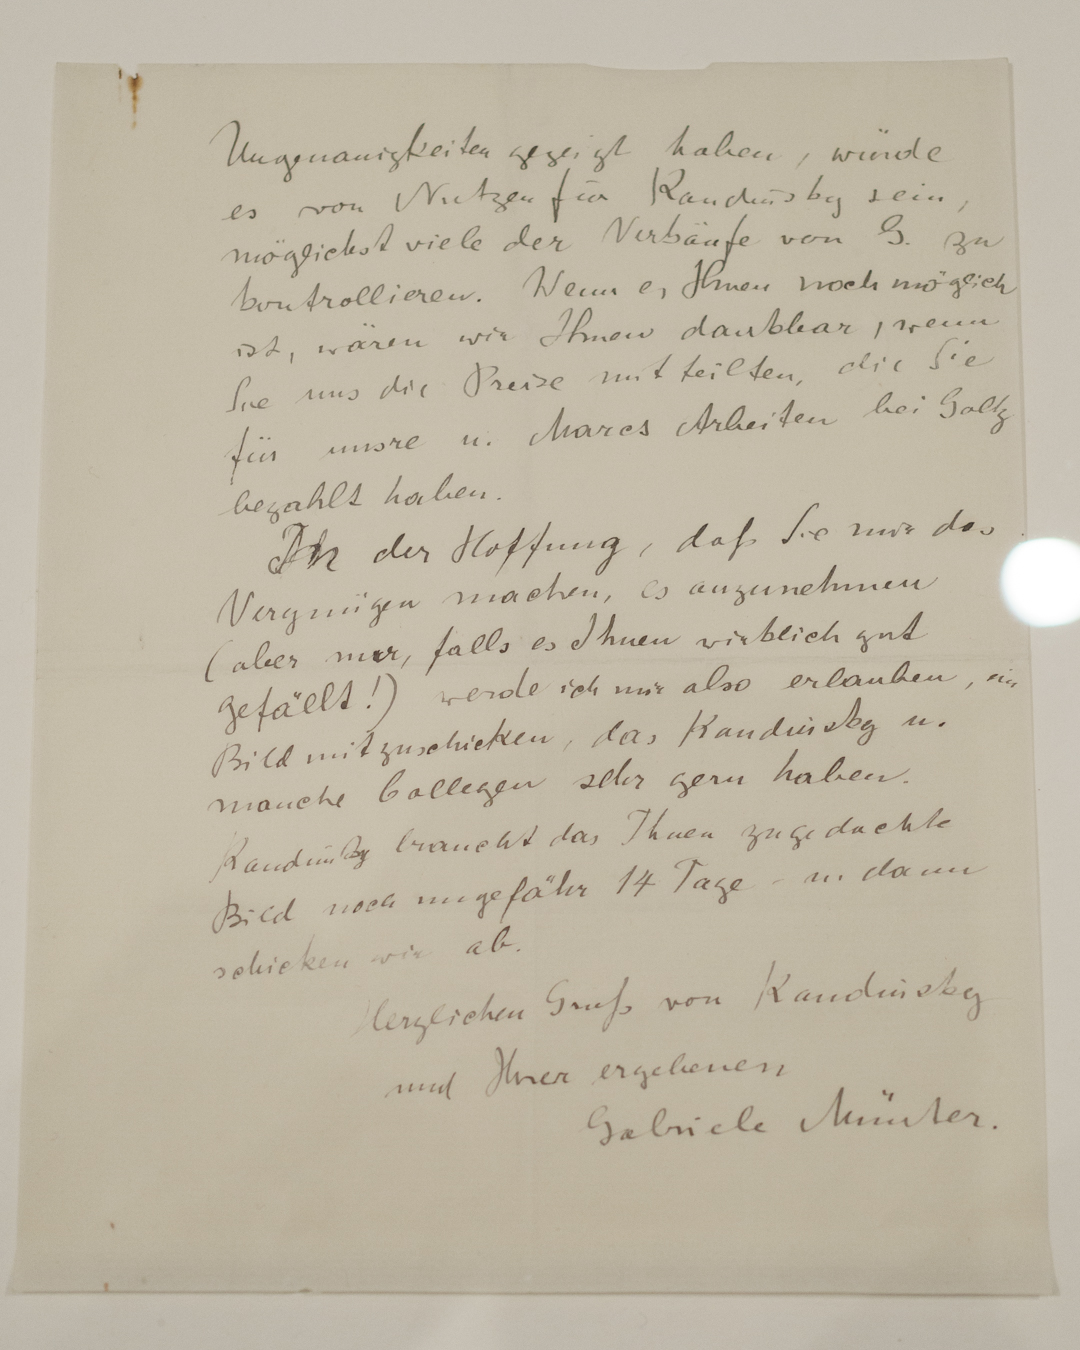 Ungenauigkeiten gezeigt haben, würde
es von Nutzen für Kandinsky sein,
möglichst viele der Verkäufe von G. zu
kontrollieren. Wenn es Ihnen noch möglich
ist, wären wir Ihnen dankbar, wenn
Sie uns die Preise mitteilten, die Sie
für unsre u. Marcs Arbeiten bei Goltz
bezahlt haben.
In der Hoffnung, daß Sie mir das
Vergnügen machen, es anzunehmen
(aber nur, falls es Ihnen wirklich gut
gefällt!) werde ich mir also erlauben, ein
Bild mitzuschicken, das Kandinsky u.
manche Collegen sehr gern haben.
Kandinsky braucht das Ihnen zugedachte
Bild noch ungefähr 14 Tage - u. dann
schicken wir ab.
Herzlichen Gruß von Kandinsky
und Ihrer ergebenen
Gabriele Münter.